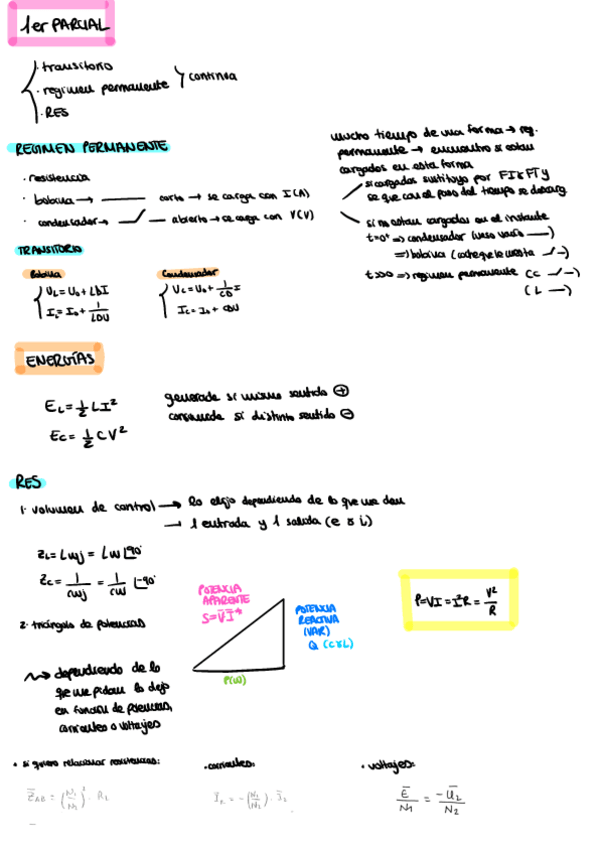 1er PARCIAL
· transitorio
· regimen permanente
continua
· RES
REGIMEN PERMANENTE
· resistencia
· bobina → corto → se carga con I(A)
· condensador → abierto → se carga con V(V)
mucho tiempo de una forma → reg.
permanente → encuentro si estan
cargados en esta forma
si cargados sustituyo por FI y FT y
se que con el paso del tiempo se descarg.
si no estan cargados en el instante
t=0⁺ => condensador (vaso vacio —)
=> bobina (
t>>0 => regimen permanente (C —/—)
(L —)
TRANSITORIO
Bobina
UL = U0 + LDI
IL = I0 + 1/LDU
Condensador
UC = U0 + 1/CD I
IC = I0 + CDU
ENERGÍAS
EL = 1/2 LI²
EC = 1/2 CV²
generada si mismo sentido ⊕
consumida si distinto sentido ⊖
RES
1· volumen de control → lo elijo dependiendo de lo que me dan
→ 1 entrada y 1 salida (e s i)
ZL = Lwj = Lw∠90°
ZC = 1/cwj = 1/cw ∠-90°
2· triángulo de potencias
POTENCIA
APARENTE
S = V̄ Ī*
POTENCIA
REACTIVA
(VAR)
Q (C y L)
P(W)
P = VI = I²R = V²/R
dependiendo de lo
que me pidan lo dejo
en función de potencias,
corrientes o voltajes
• si quiero relacionar resistencias:
Z̄AB = (N1/N2)² · R2
· corrientes:
· voltajes:
Ē/N1 = -Ū2/N2